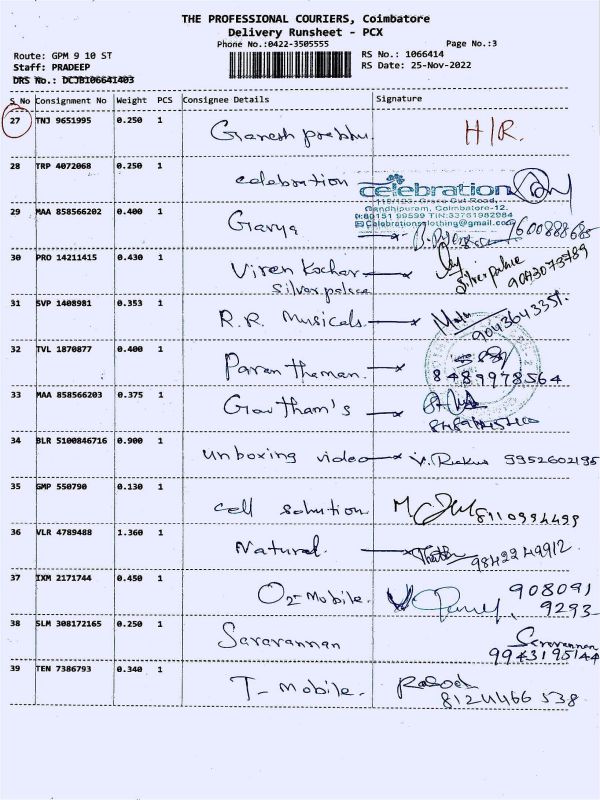 THE PROFESSIONAL COURIERS, Coimbatore
Delivery Runsheet - PCX
Phone No.:0422-3505555
Page No.:3
Route: GPM 9 10 ST
RS No.: 1066414
Staff: PRADEEP
RS Date: 25-Nov-2022
DRS No.: DCJB106641403
S No Consignment No Weight PCS Consignee Details Signature
27 TNJ 9651995 0.250 1 Ganesh prabhu. H/R.
28 TRP 4072068 0.250 1 celebration
celebration
Gandhipuram, Coimbatore-12.
29 MAA 858566202 0.400 1 Gavya 9600888685
30 PRO 14211415 0.430 1 Viren Kochar
Silver palace Silver palace 9043073789
31 SVP 1408981 0.353 1 R.R. Musicals 9043643351.
32 TVL 1870877 0.400 1 Paranthaman. 8489978564
33 MAA 858566203 0.375 1 Gowtham's
34 BLR 5100846716 0.900 1 unboxing video 9952602195
35 GMP 550790 0.130 1 cell solution 8110994499
36 VLR 4789488 1.360 1 Natural. 9842249912.
37 IXM 2171744 0.450 1 O2 mobile. 908091
9293
38 SLM 308172165 0.250 1 Saravannan Saravannan
9943195144
39 TEN 7386793 0.340 1 T- mobile.
8124466 538